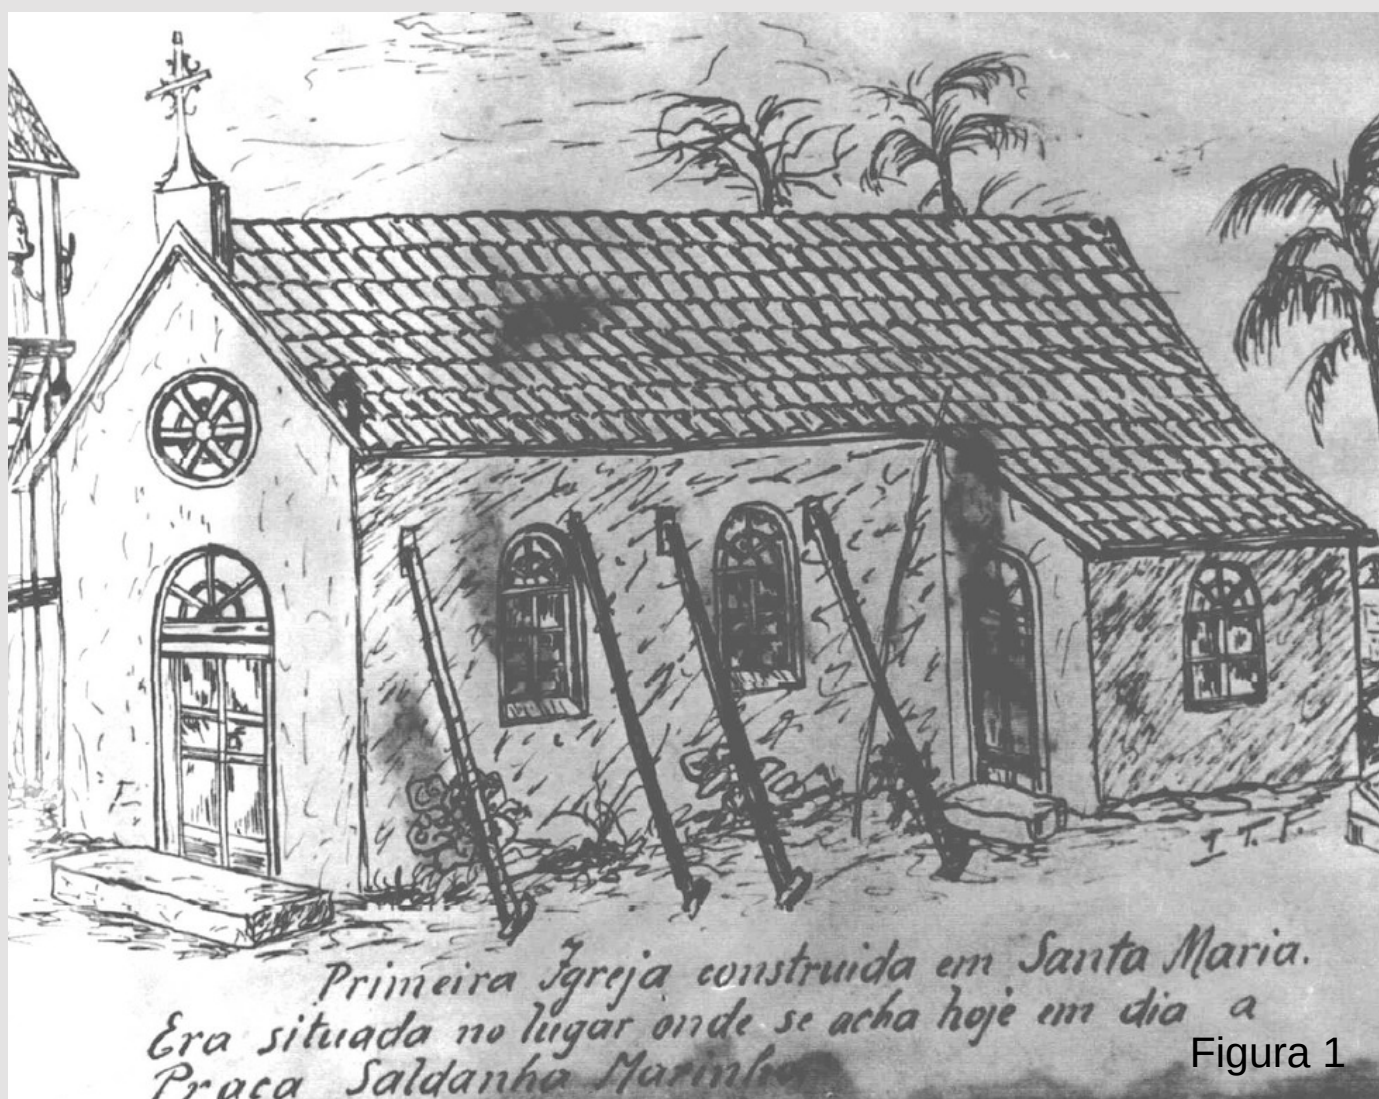 I. T. F.
Primeira Igreja construida em Santa Maria.
Era situada no lugar onde se acha hoje em dia a
Praça Saldanha Marinho
Figura 1